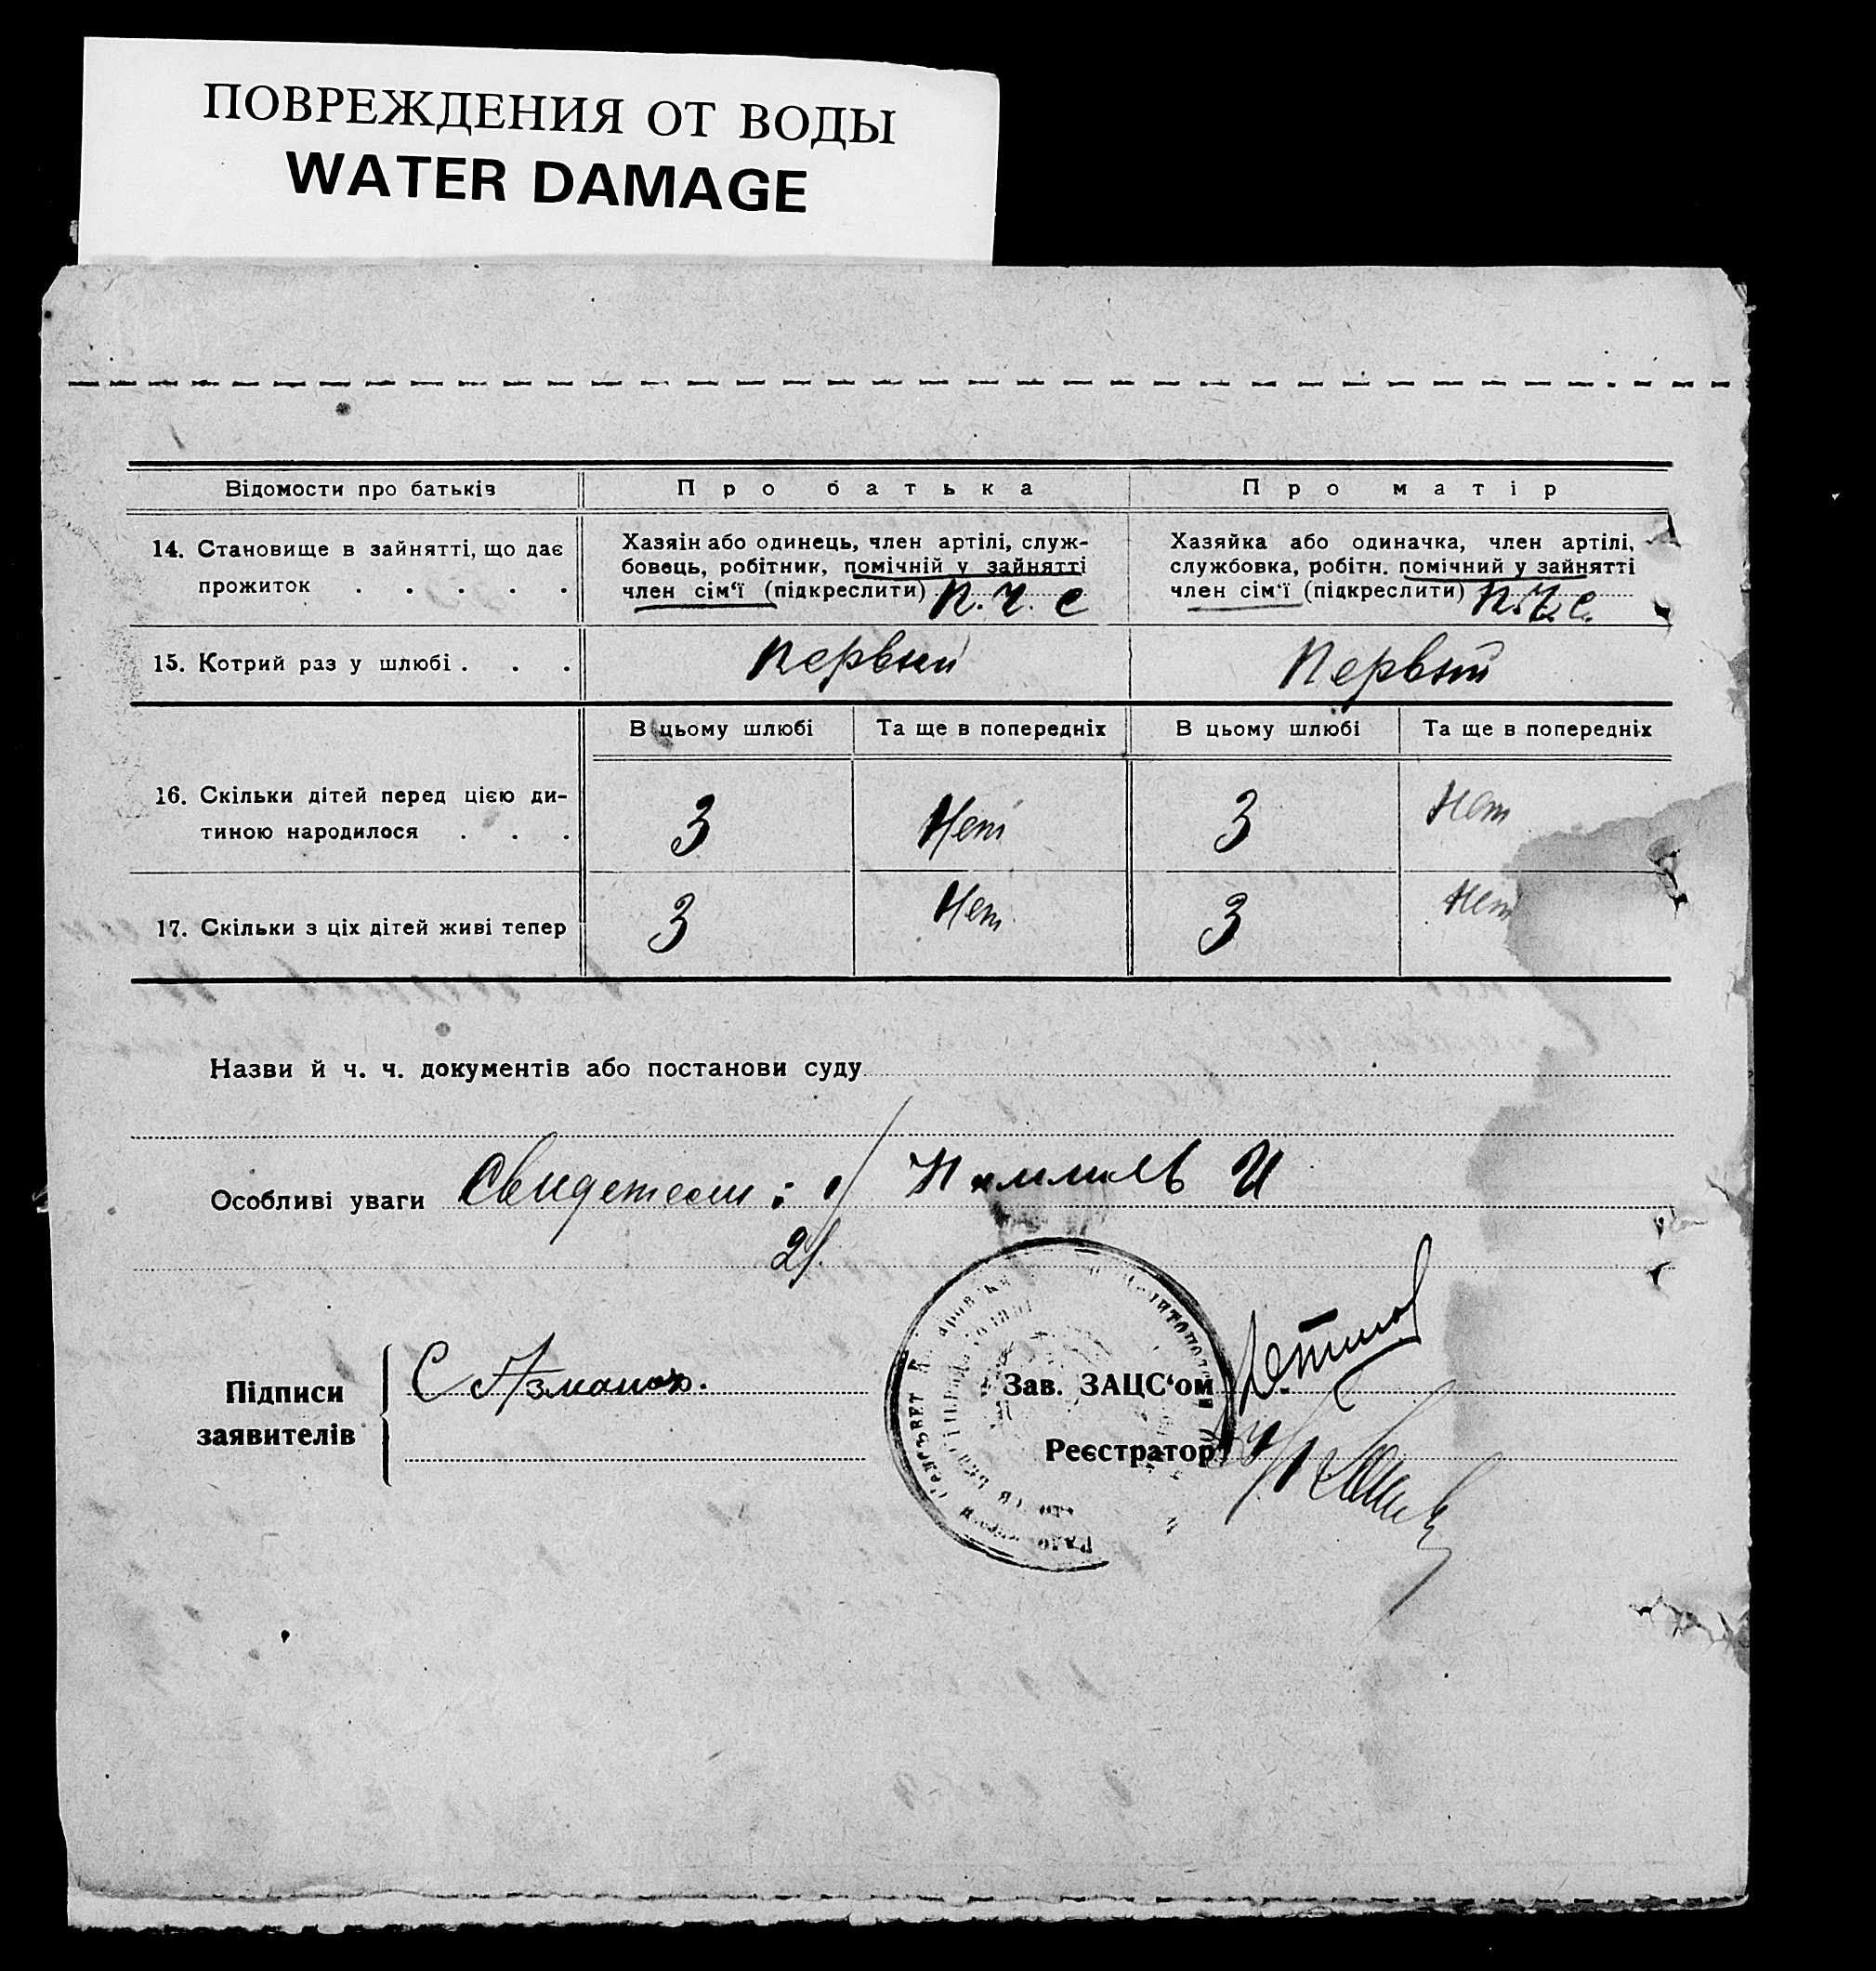 ПОВРЕЖДЕНИЯ ОТ ВОДЫ
WATER DAMAGE
Відомости про батьків
Про батька
Про матір
14. Становище в зайнятті, що дає
прожиток . . . . .
Хазяїн або одинець, член артілі, служ-
бовець, робітник, помічній у зайнятті
член сім‘ї (підкреслити) п. ч. с
Хазяйка або одиначка, член артілі,
службовка, робітн. помічний у зайнятті
член сім‘ї (підкреслити) п. ч. с.
15. Котрий раз у шлюбі . . .
Первый
Первый
В цьому шлюбі
Та ще в попередніх
В цьому шлюбі
Та ще в попередніх
16. Скільки дітей перед цією ди-
тиною народилося . . .
3
Нет
3
Нет
17. Скільки з ціх дітей живі тепер
3
Нет
3
Нет
Назви й ч. ч. документів або постанови суду
Особливі уваги Свидетели: 1/
2/.
Підписи
заявителів
С
Зав. ЗАЦС‘ом
Реєстратор